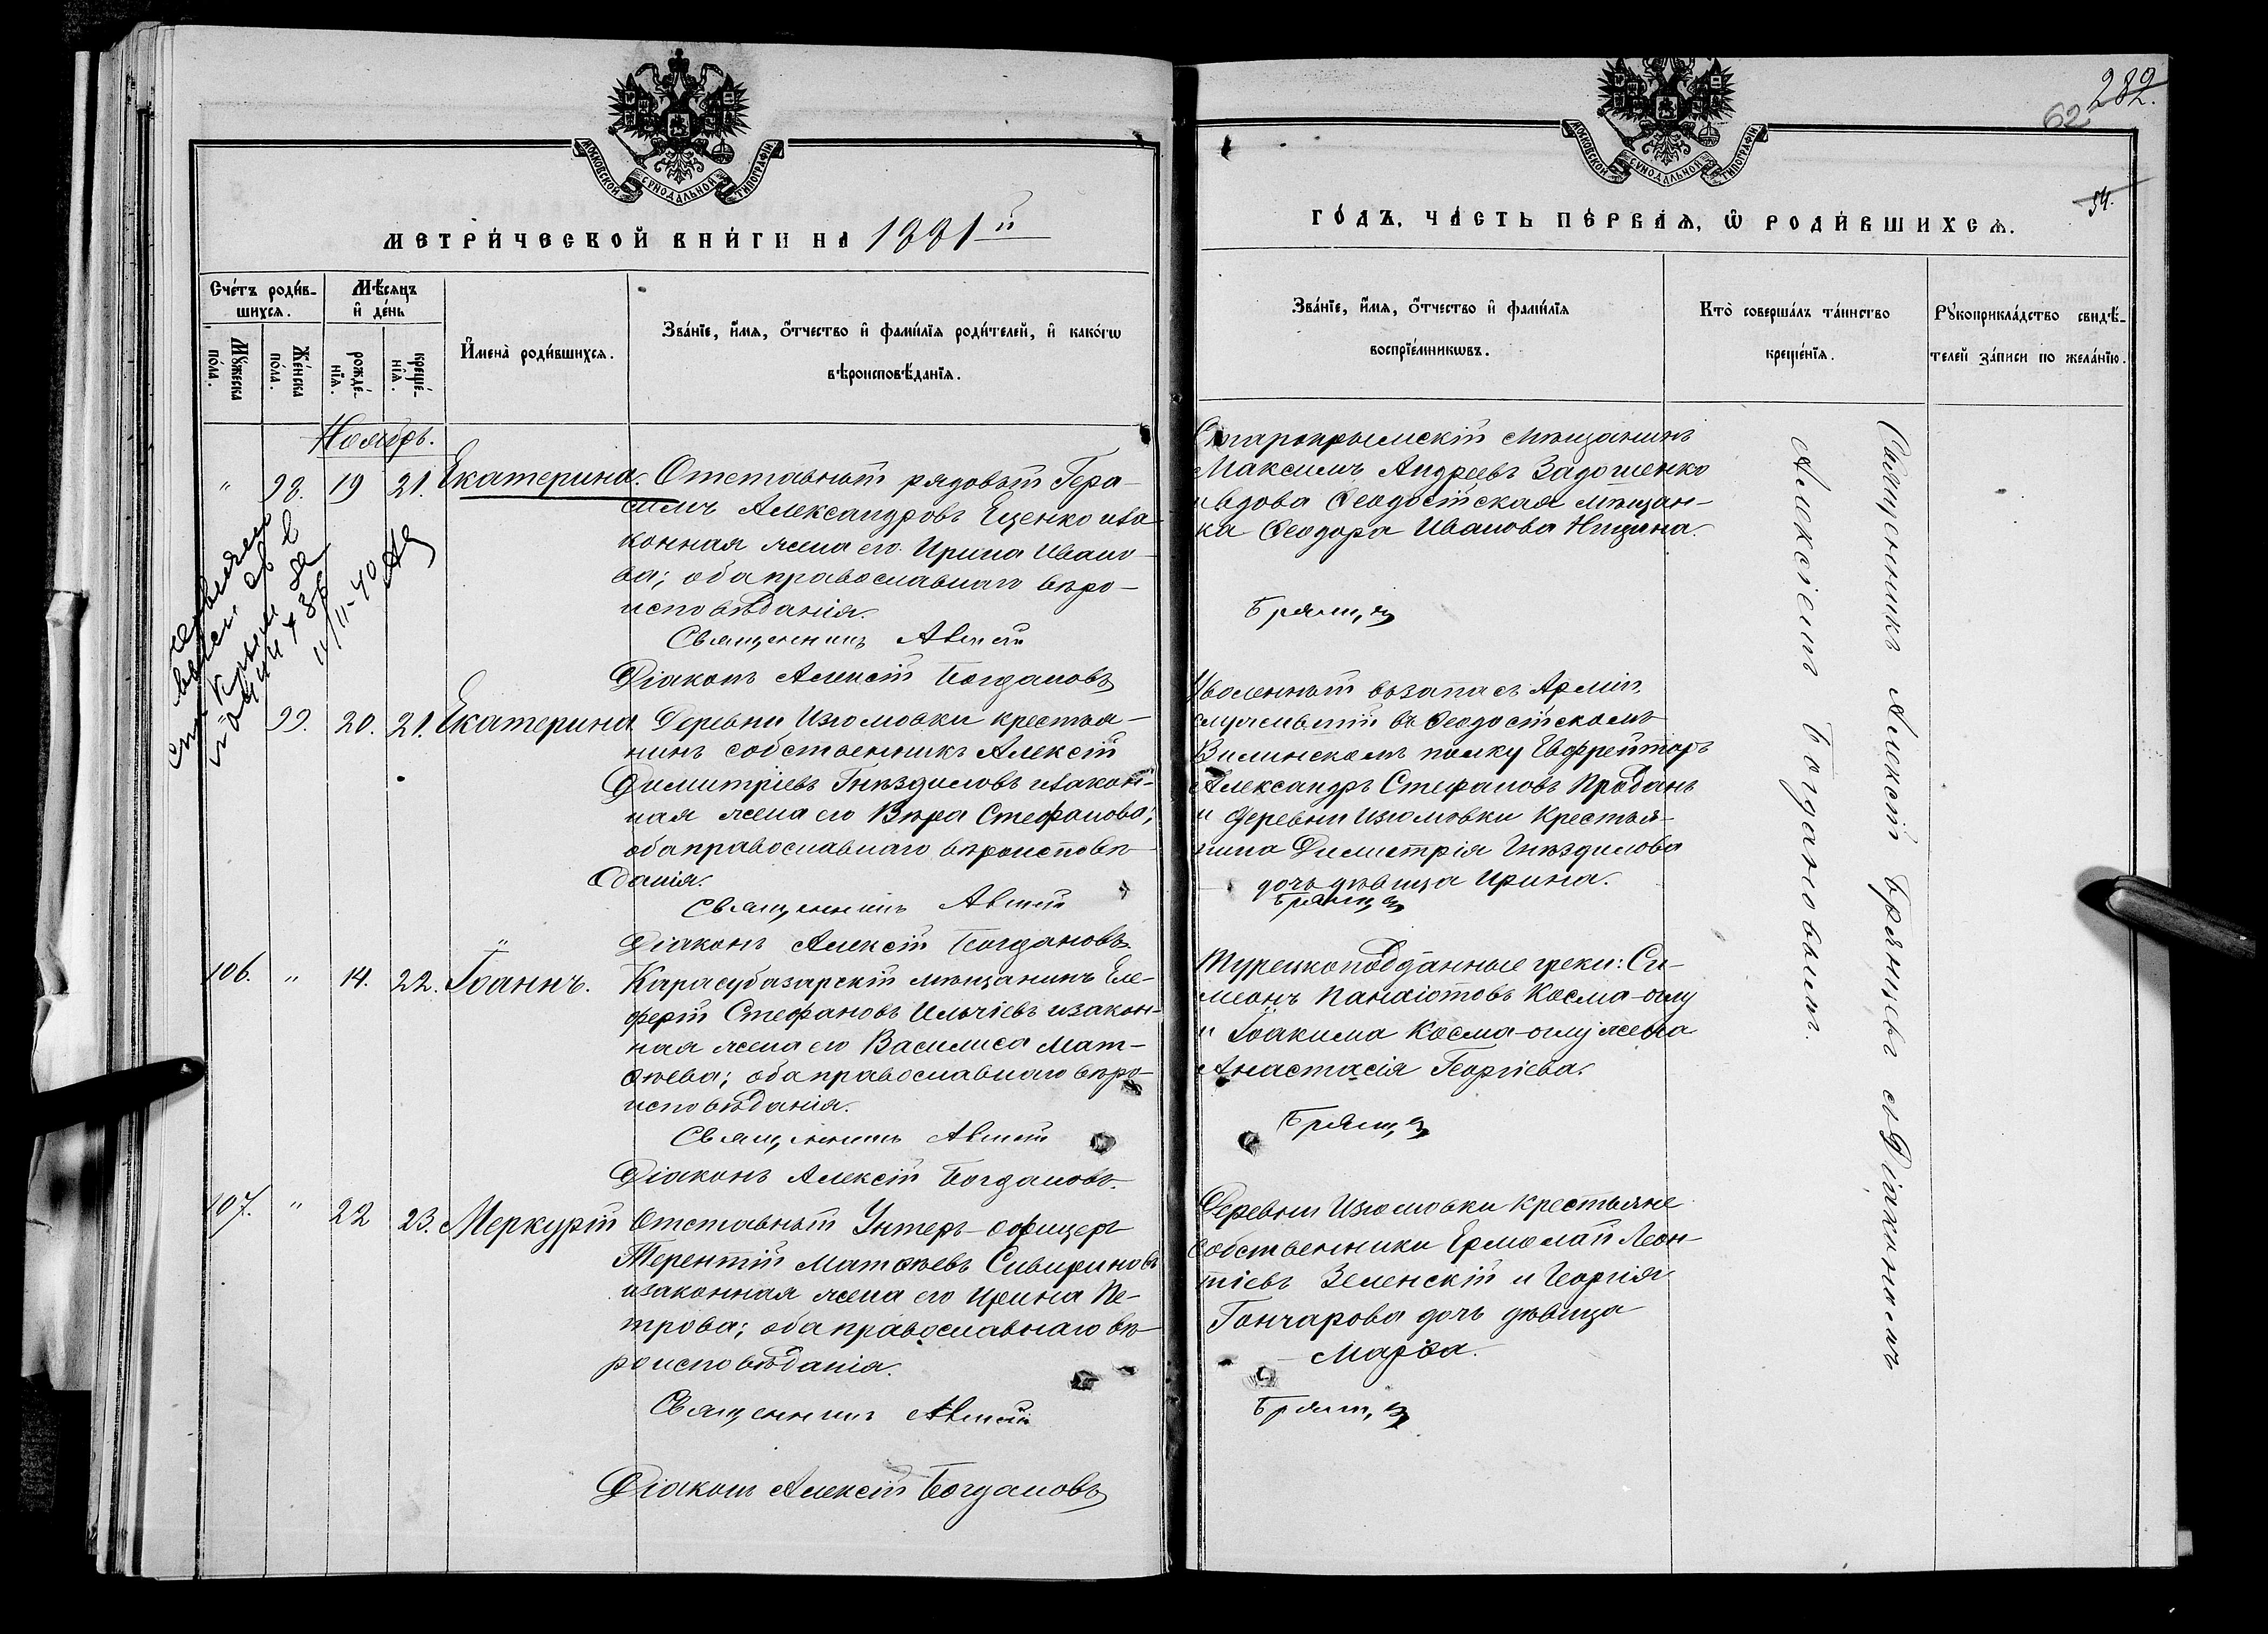 МОСКОВСКОЙ СУНОДАЛЬНОЙ ТИПОГРАФІИ
МЕТРИ́ЧЕСКОЙ КНИ́ГИ НА 1881й
Сче́тъ роди́в-
шихся.
Мѣ́сяцъ
и҆ де́нь
Мꙋ́жеска по́ла.
Же́нска по́ла.
рожде́-нїѧ.
креще́-нїѧ.
И҆мена̀ роди́вшихся.
Зва́нїе, и҆́мѧ, ѻ҆́тчество и҆ фами́лїѧ роди́телей, и҆ како́гѡ
вѣроисповѣ́данїѧ.
Ноябрь.
" 98. 19 21. Екатерина. Отставный рядовый Гера-
симъ Александровъ Еценко и за-
конная жена его Ирина Ивано-
ва; оба православнаго вѣро-
исповѣданія.
Священникъ Алексій
Діаконъ Алексій Богдановъ
" 99. 20. 21. Екатерина Деревни Изюмовки крестья-
нинъ собственникъ Алексій
Димитріевъ Гнѣздиловъ и закон-
ная жена его Вѣра Стефанова;
оба православнаго вѣроисповѣ-
данія.
Священникъ Алексій
Діаконъ Алексій Богдановъ.
106. " 14. 22. Іоаннъ. Карасубазарскій мѣщанинъ Еле-
ферій Стефановъ Ильчіевъ и закон-
ная жена его Василиса Мат-
ѳѣева; оба православнаго вѣро-
исповѣданія.
Священникъ Алексій
Діаконъ Алексій Богдановъ.
107. " 22 23. Меркурій Отставный Унтеръ-офицеръ
Терентій Матѳѣевъ Сивириновъ
и законная жена его Ирина Пе-
трова; оба православнаго вѣ-
роисповѣданія.
Священникъ Алексій
Діаконъ Алексій Богдановъ
11/II-40
282.
62
54.
МОСКОВСКОЙ СУНОДАЛЬНОЙ ТИПОГРАФІИ
ГО́ДЪ, ЧА́СТЬ ПЕ́РВАЯ, Ѡ҆ РОДИ́ВШИХСЯ.
Зва́нїе, и҆́мѧ, ѻ҆́тчество и҆ фами́лїѧ
воспрїе́мникѡвъ.
Кто̀ соверша́лъ та́инство
креще́нїѧ.
Рꙋкоприкла́дство свидѣ́-
телей за́писи по жела́нїю.
Старокрымскій мѣщанинъ
Максимъ Андреевъ Задошенко
и вдова Ѳеодосійская мѣщан-
ка Ѳеодора Иванова Ницина.
Брянц
Уволенный въ запасъ Арміи
служившій въ Ѳеодосійскомъ
Вилинскомъ полку Ефрейторъ
Александръ Стефановъ Проданъ
и деревни Изюмовки Крестья-
нина Димитрія Гнѣздилова
дочь дѣвица Ирина.
Брянц
Турецкоподданные греки: Си-
меонъ Панаіотовъ Косма-оглу
и Іоакима Косма-оглу жена
Анастасія Георгіева.
Брянц
Деревни Изюмовки крестьяне
собственники Ермолай Леон-
тіевъ Зеленскій и Георгія
Гончарова дочь дѣвица
Марѳа.
Брянц
Священникъ Алексій Брянцевъ съ Діакономъ
Алексіемъ Богдановымъ.